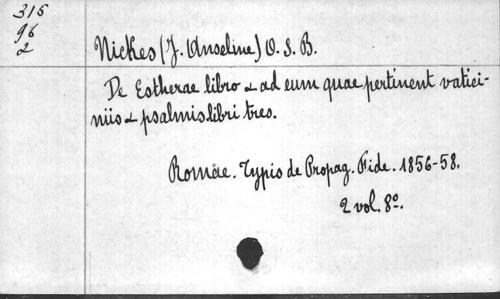 315
96
2
Nickes (J. Anseline) O. S. B.
De Estherae libro & ad eum quae pertinent vatici-
niis & psalmis libri tres.
Romae. Typis de Propag. Fide. 1856-58.
2 vol. 8º.